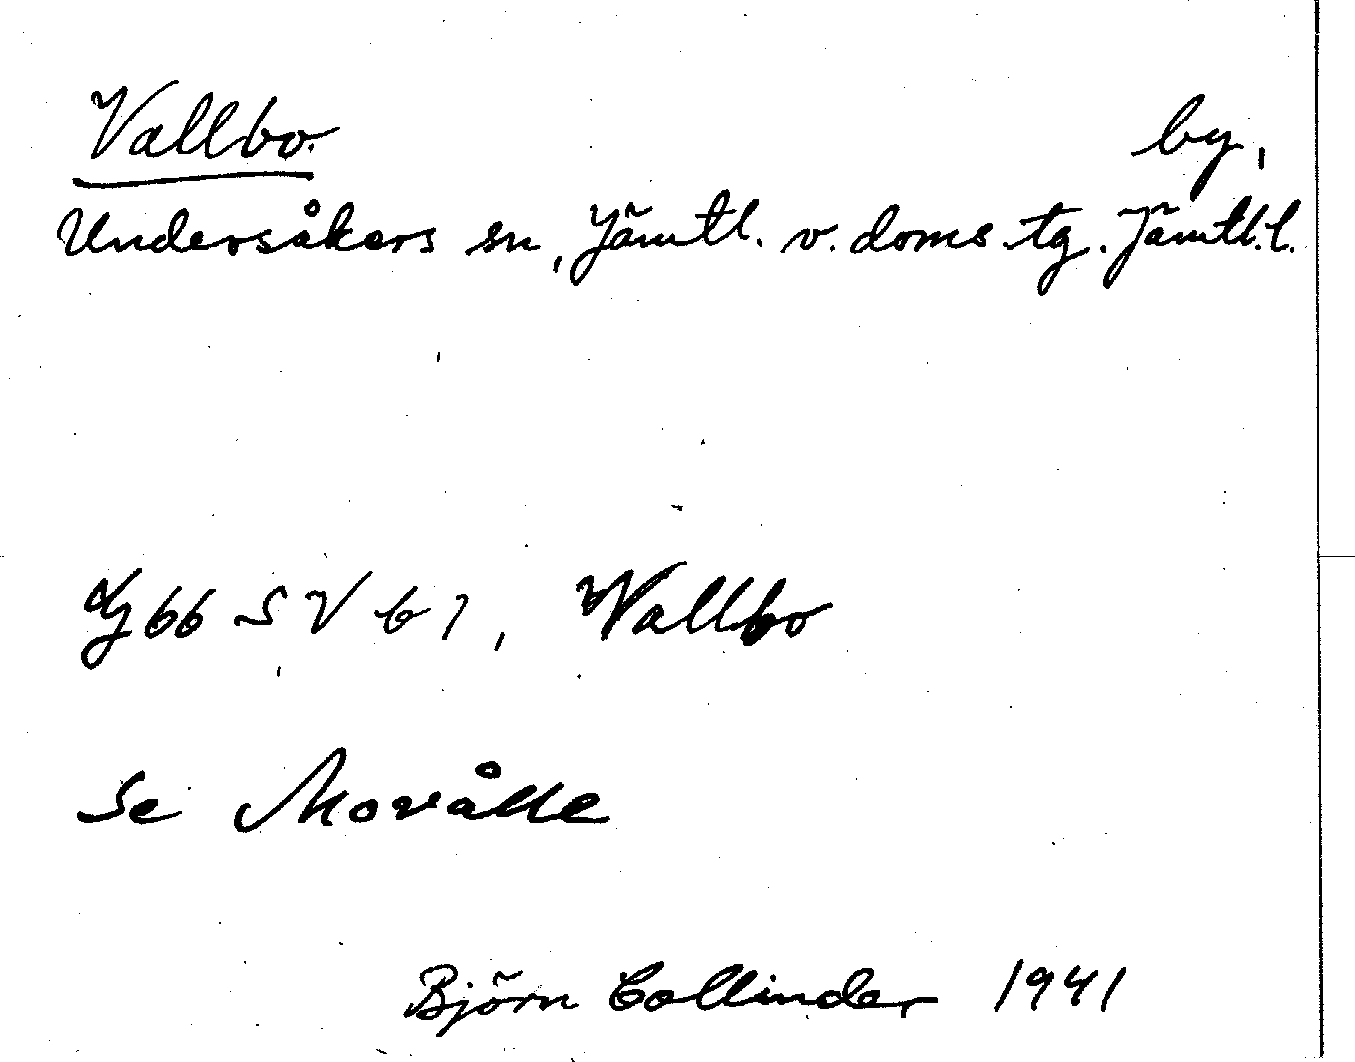 Vallbo. by,
Undersåkers sn, Jämtl. v. doms.tg. Jämtl.l.
66 SV b 1, Vallbo
Se Movålle
Björn Collinder 1941